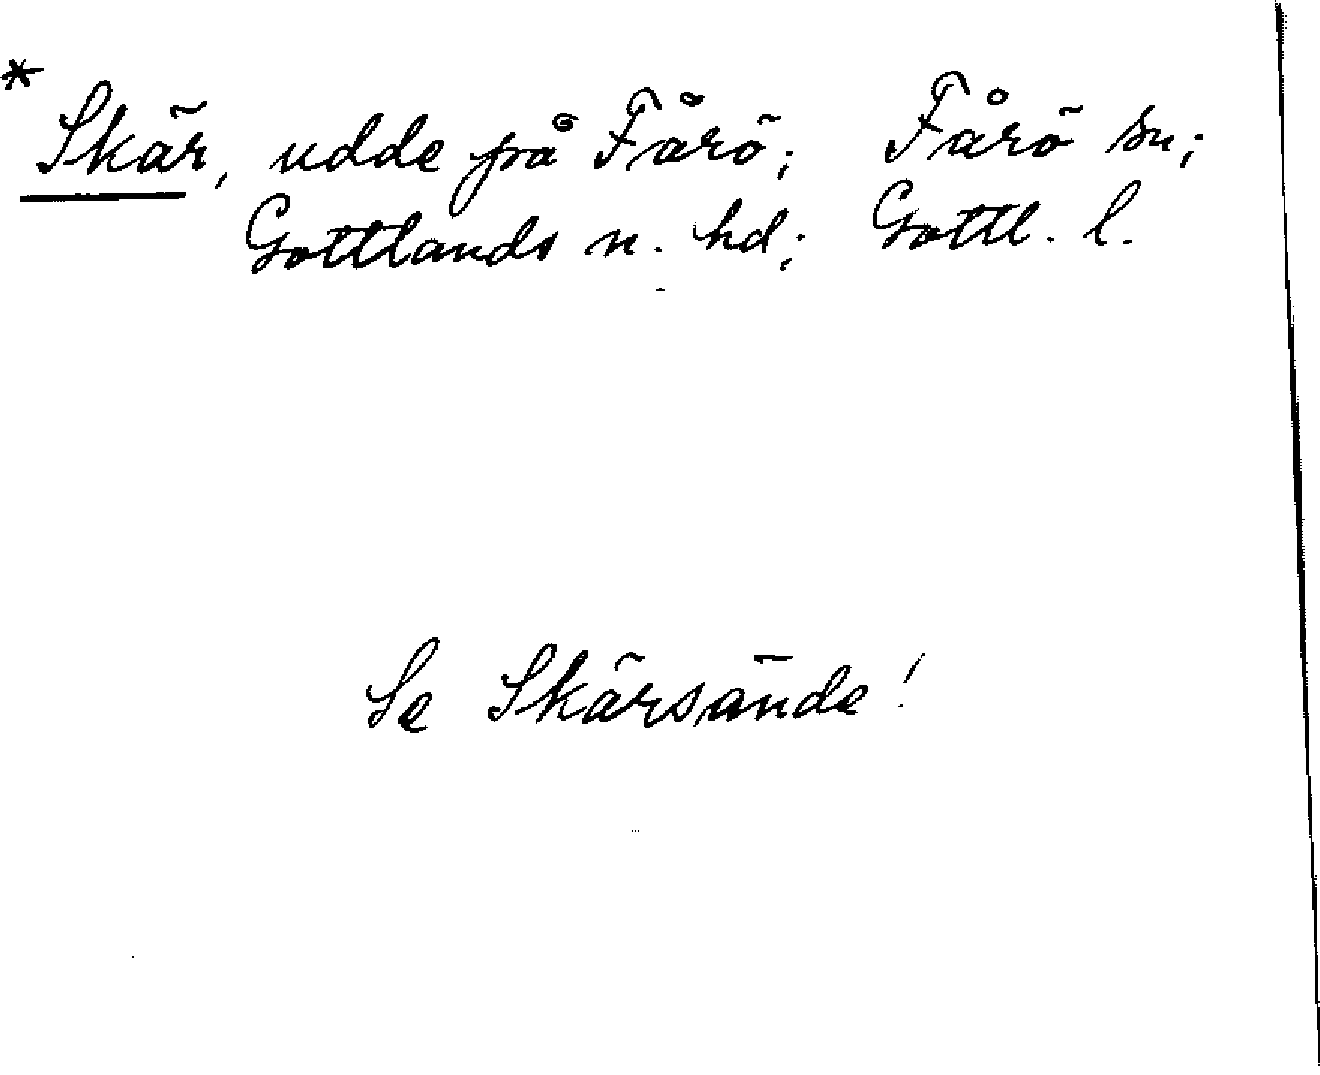 * Skär, udde på Fårö; Fårö sn;
Gottlands n. hd; Gottl. l.
Se Skärsände!